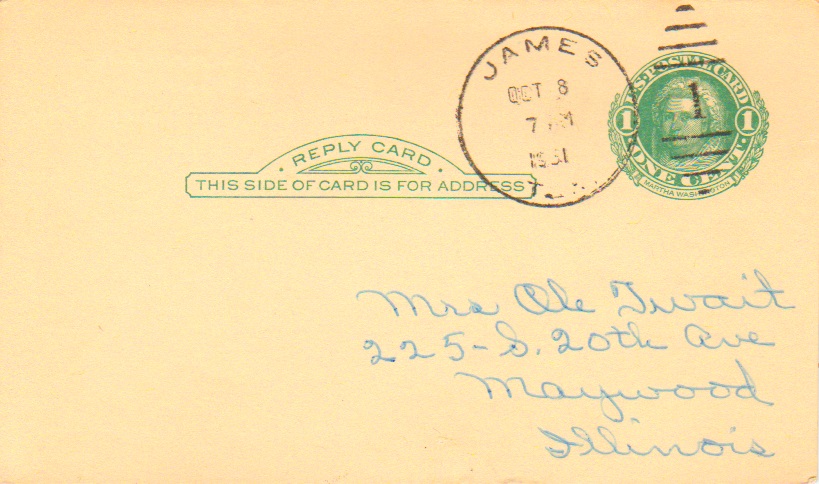 JAMES
OCT 8
7 AM
1931
U.S. POSTAL CARD
1 1
1
ONE CENT.
MARTHA WASHINGTON
REPLY CARD
THIS SIDE OF CARD IS FOR ADDRESS
Mrs Ole Twait
225 - S. 20th Ave
Maywood
Illinois